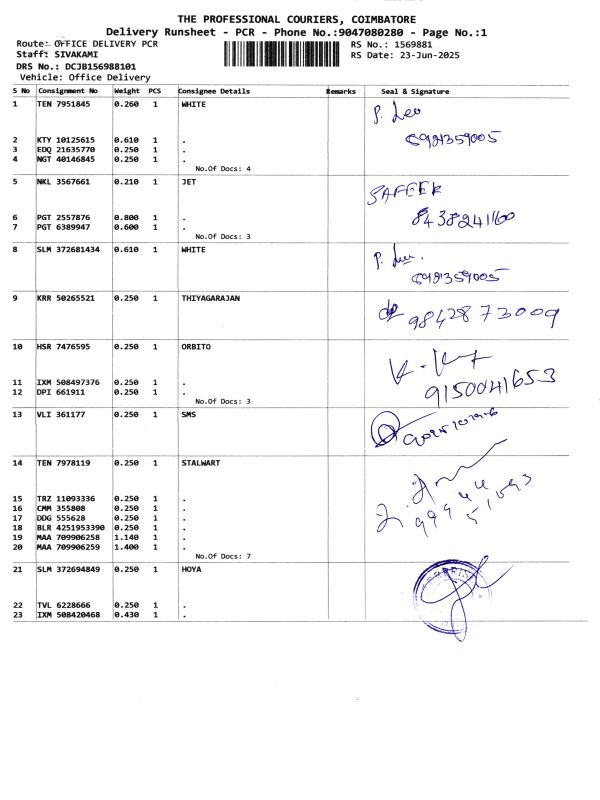 THE PROFESSIONAL COURIERS, COIMBATORE
Delivery Runsheet - PCR - Phone No.:9047080280 - Page No.:1
Route: OFFICE DELIVERY PCR
RS No.: 1569881
Staff: SIVAKAMI
RS Date: 23-Jun-2025
DRS No.: DCJB156988101
Vehicle: Office Delivery
S No Consignment No Weight PCS Consignee Details Remarks Seal & Signature
1 TEN 7951845 0.260 1 WHITE
P. Leo
6981359005
2 KTY 10125615 0.610 1 .
3 EDQ 21635770 0.250 1 .
4 NGT 40146845 0.250 1 .
No.Of Docs: 4
5 NKL 3567661 0.210 1 JET
SAFEEK
8438241160
6 PGT 2557876 0.800 1 .
7 PGT 6389947 0.600 1 .
No.Of Docs: 3
8 SLM 372681434 0.610 1 WHITE
P.
6981359005
9 KRR 50265521 0.250 1 THIYAGARAJAN
9842873009
10 HSR 7476595 0.250 1 ORBITO
9150041653
11 IXM 508497376 0.250 1 .
12 DPI 661911 0.250 1 .
No.Of Docs: 3
13 VLI 361177 0.250 1 SMS
14 TEN 7978119 0.250 1 STALWART
15 TRZ 11093336 0.250 1 .
16 CMM 355808 0.250 1 .
17 DDG 555628 0.250 1 .
18 BLR 4251953390 0.250 1 .
19 MAA 709906258 1.140 1 .
20 MAA 709906259 1.400 1 .
No.Of Docs: 7
21 SLM 372694849 0.250 1 HOYA
22 TVL 6228666 0.250 1 .
23 IXM 508420468 0.430 1 .